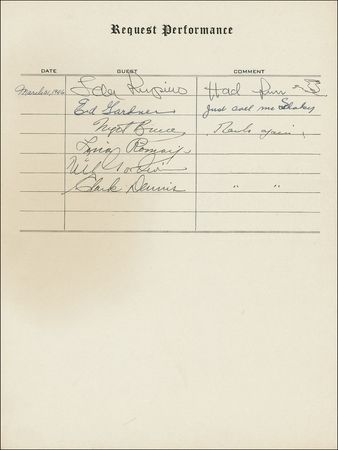 Request Performance
DATE GUEST COMMENT
March 31, 1946 Ida Lupino Had fun
Ed Gardner Just call me Shakey
Nigel Bruce Thanks again
Lina Romay
Clark Dennis " "